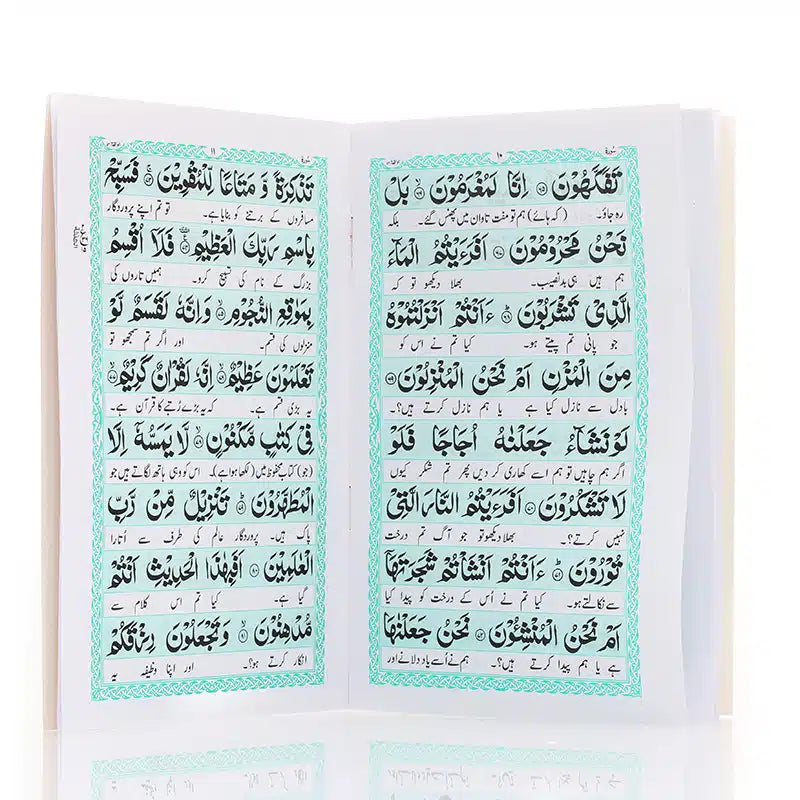 سورة ١٠
تَفَكَّهُوْنَ ۝٦٥ اِنَّا لَمُغْرَمُوْنَ ۝٦٦ بَلْ
رہ جاؤ۔ (کہ ہائے) ہم تو مفت تاوان میں پھنس گئے۔ بلکہ
نَحْنُ مَحْرُوْمُوْنَ ۝٦٧ اَفَرَءَيْتُمُ الْمَآءَ
ہم ہیں ہی بدنصیب۔ بھلا دیکھو تو کہ
الَّذِيْ تَشْرَبُوْنَ ۝٦٨ ءَاَنْتُمْ اَنْزَلْتُمُوْهُ
جو پانی تم پیتے ہو۔ کیا تم نے اس کو
مِنَ الْمُزْنِ اَمْ نَحْنُ الْمُنْزِلُوْنَ ۝٦٩
بادل سے نازل کیا ہے یا ہم نازل کرتے ہیں؟۔
لَوْ نَشَآءُ جَعَلْنٰهُ اُجَاجًا فَلَوْ
اگر ہم چاہیں تو ہم اسے کھاری کر دیں پھر تم شکر کیوں
لَا تَشْكُرُوْنَ ۝٧٠ اَفَرَءَيْتُمُ النَّارَ الَّتِيْ
نہیں کرتے؟۔ بھلا دیکھو تو جو آگ تم درخت
تُوْرُوْنَ ۝٧١ ءَاَنْتُمْ اَنْشَاْتُمْ شَجَرَتَهَآ
سے نکالتے ہو۔ کیا تم نے اُس کے درخت کو پیدا کیا
اَمْ نَحْنُ الْمُنْشِـُٔوْنَ ۝٧٢ نَحْنُ جَعَلْنٰهَا
ہے یا ہم پیدا کرتے ہیں؟۔ ہم نے اُسے یاد دلانے اور
سورة ١١
تَذْكِرَةً وَّ مَتَاعًا لِّلْمُقْوِيْنَ ۝٧٣ فَسَبِّحْ
مسافروں کے برتنے کو بنایا ہے۔ تو تم اپنے پروردگار
بِاسْمِ رَبِّكَ الْعَظِيْمِ ۝٧٤ فَلَآ اُقْسِمُ
بزرگ کے نام کی تسبیح کرو۔ ہمیں تاروں کی
بِمَوٰقِعِ النُّجُوْمِ ۝٧٥ وَاِنَّهٗ لَقَسَمٌ لَّوْ
منزلوں کی قسم۔ اور اگر تم سمجھو تو
تَعْلَمُوْنَ عَظِيْمٌ ۝٧٦ اِنَّهٗ لَقُرْاٰنٌ كَرِيْمٌ ۝٧٧
یہ بڑی قسم ہے۔ کہ یہ بڑے رُتبے کا قرآن ہے۔
فِيْ كِتٰبٍ مَّكْنُوْنٍ ۝٧٨ لَّا يَمَسُّهٗٓ اِلَّا
(جو) کتاب محفوظ میں (لکھا ہوا ہے)۔ اس کو وہی ہاتھ لگاتے ہیں جو
الْمُطَهَّرُوْنَ ۝٧٩ تَنْزِيْلٌ مِّنْ رَّبِّ
پاک ہیں۔ پروردگار عالم کی طرف سے اُتارا
الْعٰلَمِيْنَ ۝٨٠ اَفَبِهٰذَا الْحَدِيْثِ اَنْتُمْ
گیا ہے۔ کیا تم اس کلام سے
مُّدْهِنُوْنَ ۝٨١ وَتَجْعَلُوْنَ رِزْقَكُمْ
انکار کرتے ہو؟۔ اور اپنا وظیفہ یہ